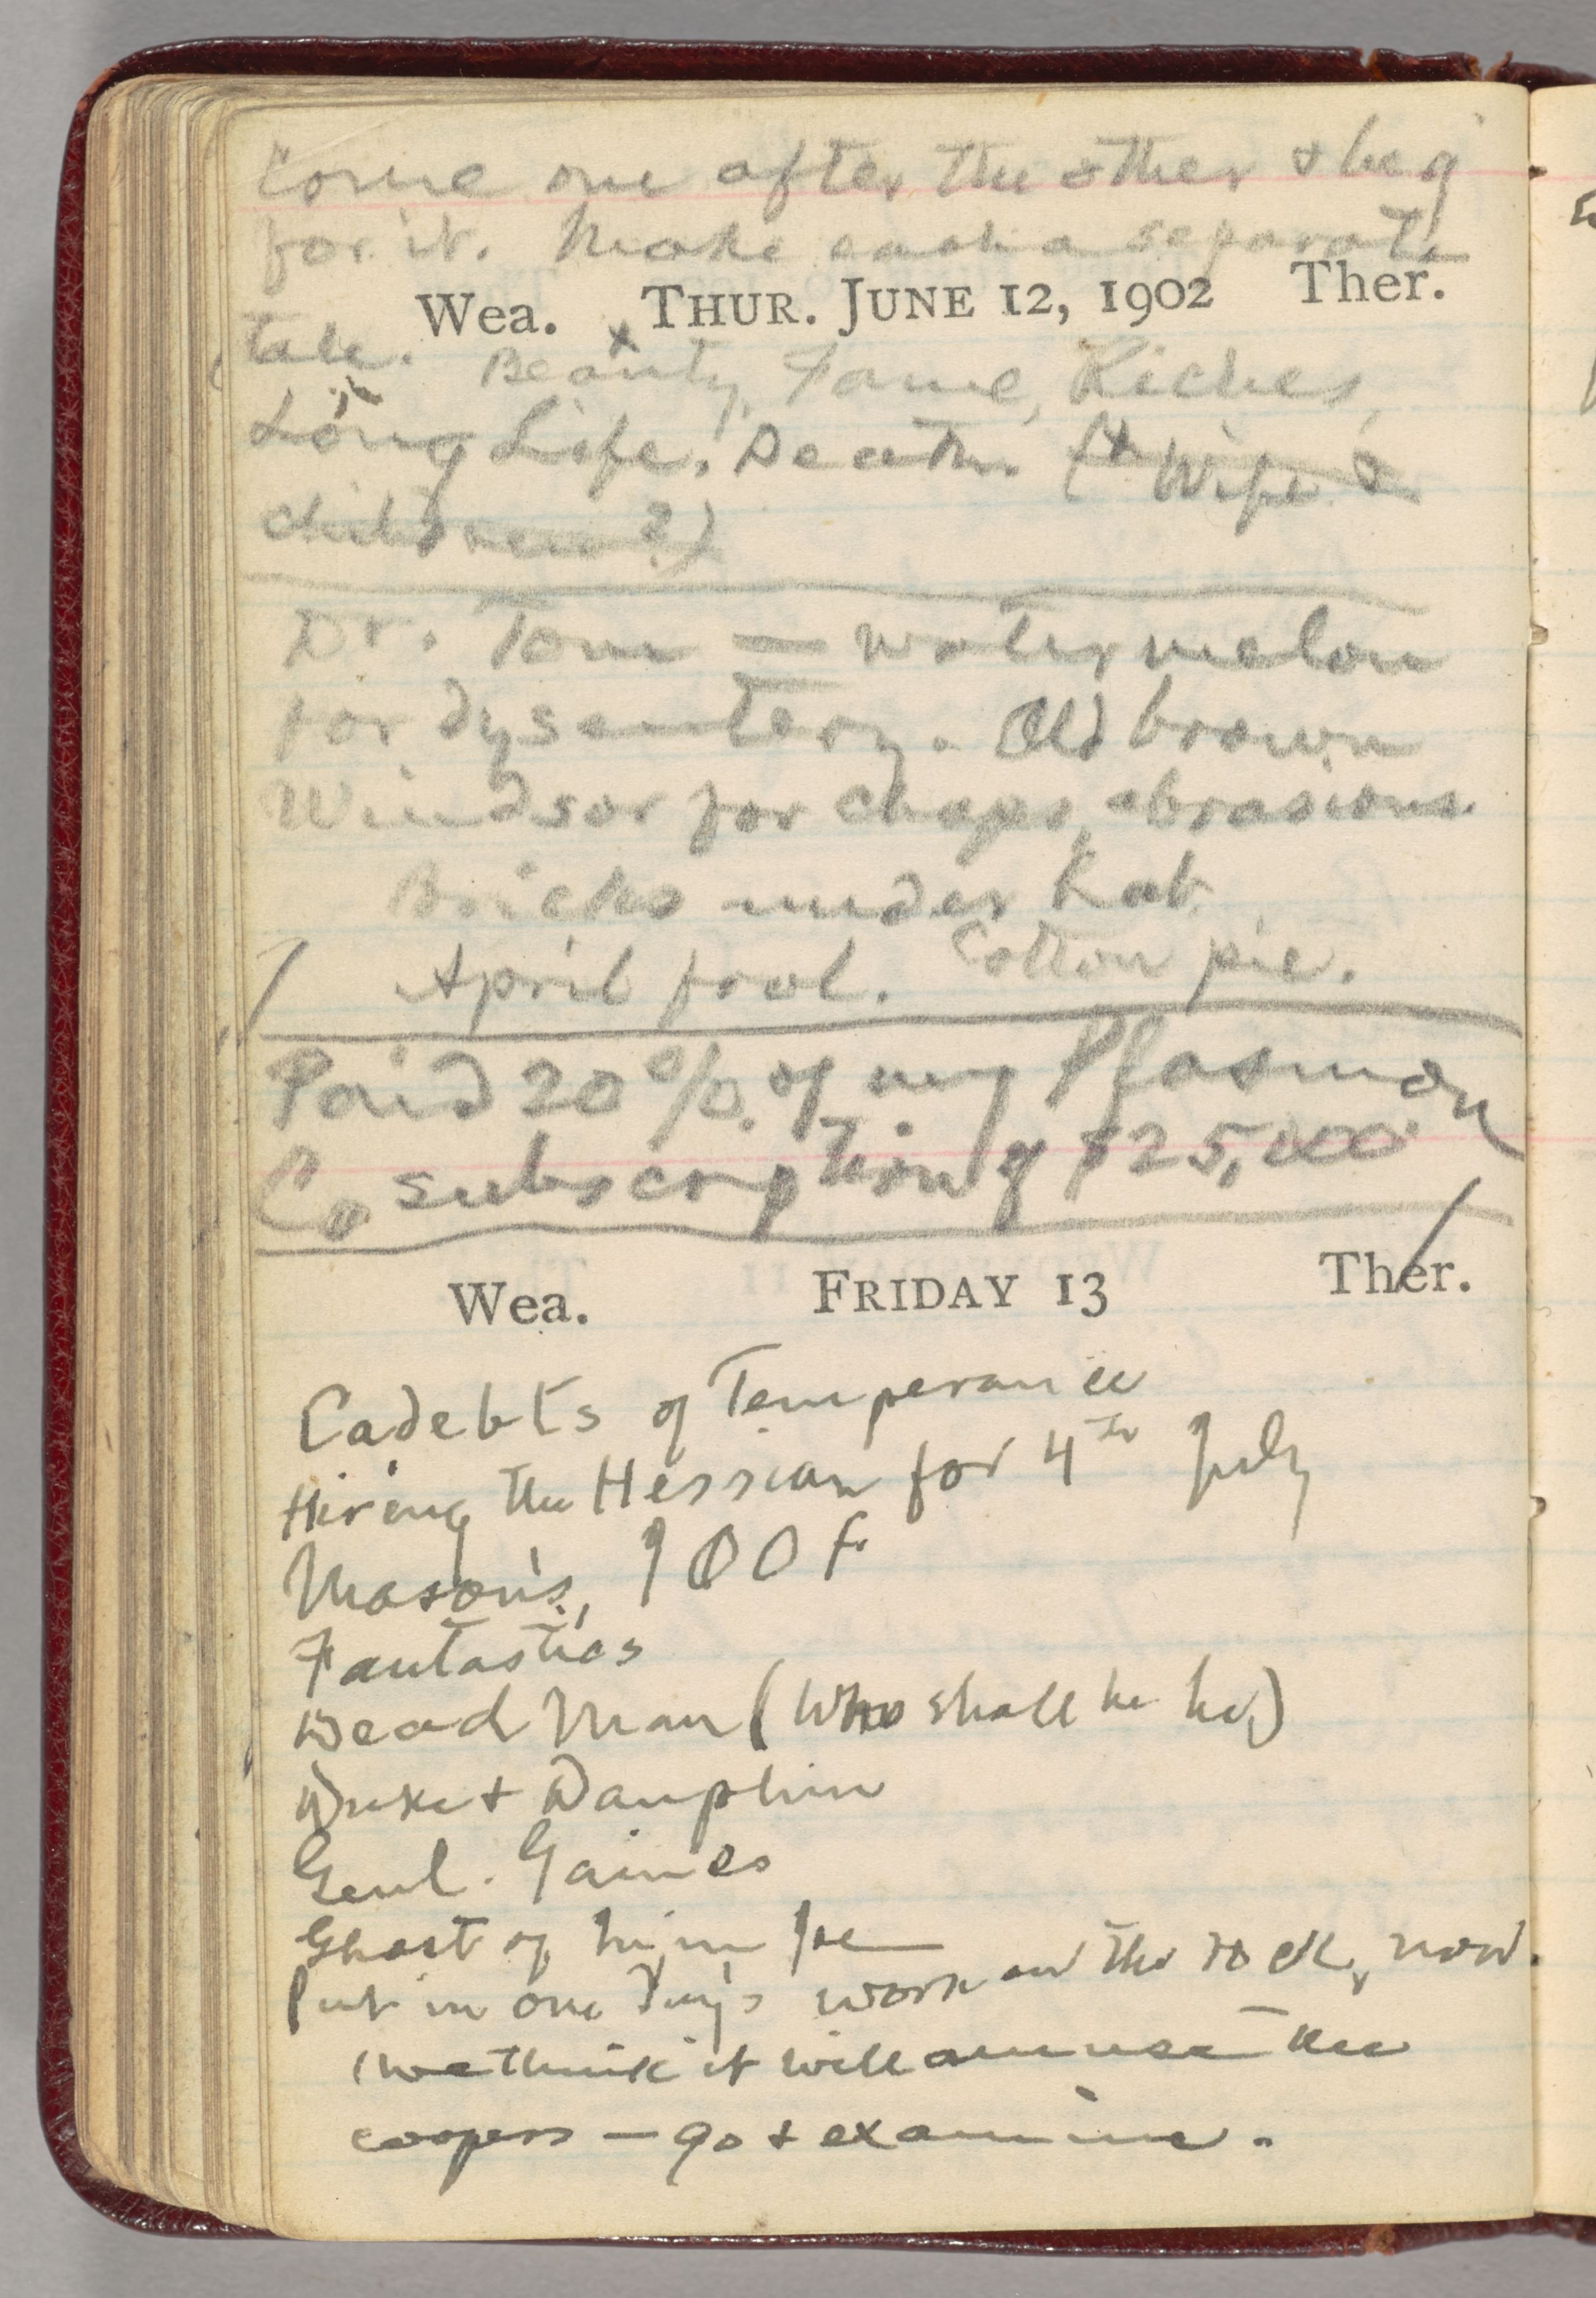 Come one after the other & beg
for it. Make each a separate
Wea. THUR. JUNE 12, 1902 Ther.
tale. Beauty, Fame, Riches,
Long Life, Death. (+ Wife &
children?)
Dr. Tom — watermelon
for dysentery. Old brown
Windsor for chaps, abrasions.
Bricks under hat.
April fool. Cotton pie.
Paid 20% of my Plasmon
Co subscription of $25,000
Wea. FRIDAY 13 Ther.
Cadets of Temperance
Hiring the Hessian for 4th July
Masons, IOOF
Fantastics
Dead Man (Who shall he be)
Duke & Dauphin
Genl. Gaines
Ghost of Injun Joe
Put in one day's work on the rock, now.
(we think it will amuse the
coopers — go & examine.